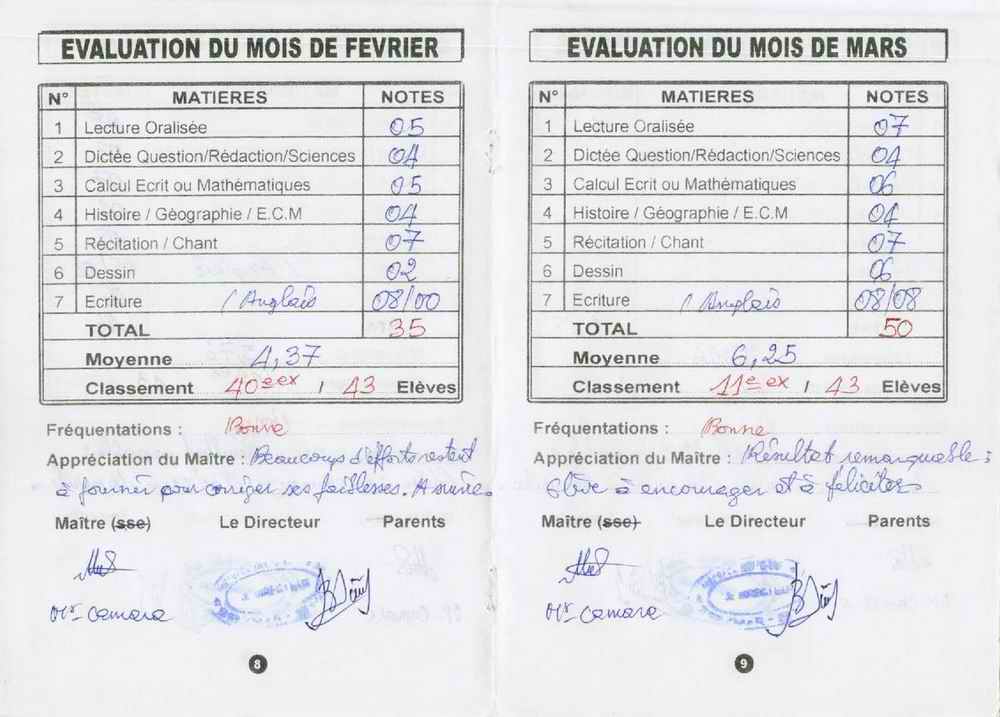 EVALUATION DU MOIS DE FEVRIER
N° MATIERES NOTES
1 Lecture Oralisée 05
2 Dictée Question/Rédaction/Sciences 04
3 Calcul Ecrit ou Mathématiques 05
4 Histoire / Géographie / E.C.M 04
5 Récitation / Chant 07
6 Dessin 02
7 Ecriture / Anglais 08/00
TOTAL 35
Moyenne 4,37
Classement 40e ex / 43 Elèves
Fréquentations : Bonne
Appréciation du Maître : Beaucoup d'efforts restent
à fournir pour corriger ses faiblesses. A suivre.
Maître (sse) Le Directeur Parents
Mr Camara
8
EVALUATION DU MOIS DE MARS
N° MATIERES NOTES
1 Lecture Oralisée 07
2 Dictée Question/Rédaction/Sciences 04
3 Calcul Ecrit ou Mathématiques 06
4 Histoire / Géographie / E.C.M 04
5 Récitation / Chant 07
6 Dessin 06
7 Ecriture / Anglais 08/08
TOTAL 50
Moyenne 6,25
Classement 11e ex / 43 Elèves
Fréquentations : Bonne
Appréciation du Maître : Résultat remarquable ;
élève à encourager et à féliciter.
Maître (sse) Le Directeur Parents
Mr Camara
9